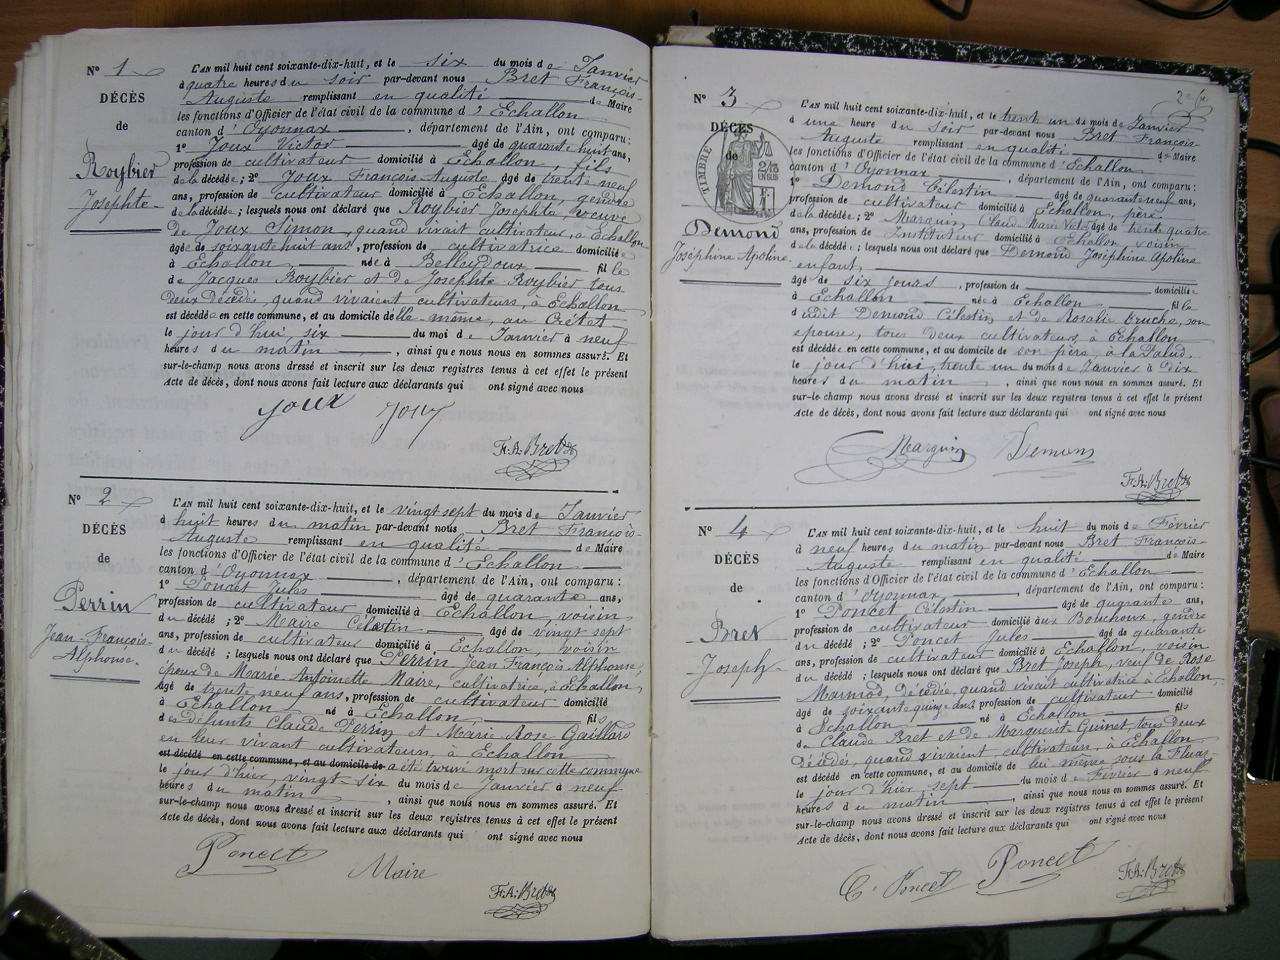 N° 1
DÉCÈS
de
Roybier
Josephte
L'AN mil huit cent soixante-dix-huit, et le six du mois de Janvier
à quatre heures du soir par-devant nous Bret François-
Auguste remplissant en qualité de Maire
les fonctions d'Officier de l'état civil de la commune d'Echallon
canton d'Oyonnax, département de l'Ain, ont comparu :
1° Joux Victor âgé de quarante huit ans,
profession de cultivateur domicilié à Echallon, fils
de la décédée ; 2° Joux François-Auguste âgé de trente neuf
ans, profession de cultivateur domicilié à Echallon, gendre
de la décédée ; lesquels nous ont déclaré que Roybier Josephte veuve
de Joux Simon, quand vivait cultivateur, à Echallon
âgée de soixante huit ans, profession de cultivatrice domiciliée
à Echallon née à Belleydoux fille
de Jacques Roybier et de Josephte Roybier tous
deux décédés, quand vivaient cultivateurs, à Echallon
est décédée en cette commune, et au domicile d'elle-même, au Crétet
le jour d'hui, six du mois de Janvier à neuf
heures du matin, ainsi que nous nous en sommes assuré. Et
sur-le-champ nous avons dressé et inscrit sur les deux registres tenus à cet effet le présent
Acte de décès, dont nous avons fait lecture aux déclarants qui ont signé avec nous
Joux Joux
F.A. Bret
N° 2
DÉCÈS
de
Perrin
Jean-François-
Alphonse
L'AN mil huit cent soixante-dix-huit, et le vingt sept du mois de Janvier
à huit heures du matin par-devant nous Bret François-
Auguste remplissant en qualité de Maire
les fonctions d'Officier de l'état civil de la commune d'Echallon
canton d'Oyonnax, département de l'Ain, ont comparu :
1° Poncet Jules âgé de quarante ans,
profession de cultivateur domicilié à Echallon, voisin
du décédé ; 2° Maire Célestin âgé de vingt sept
ans, profession de cultivateur domicilié à Echallon, voisin
du décédé ; lesquels nous ont déclaré que Perrin Jean François Alphonse,
époux de Marie Antoinette Maire, cultivatrice, à Echallon,
âgé de trente neuf ans, profession de cultivateur domicilié
à Echallon né à Echallon fils
des défunts Claude Perrin et Marie Rose Gaillard
en leur vivant cultivateurs, à Echallon
est décédé en cette commune, et au domicile de a été trouvé mort sur cette commune
le jour d'hier, vingt-six du mois de Janvier à neuf
heures du matin, ainsi que nous nous en sommes assuré. Et
sur-le-champ nous avons dressé et inscrit sur les deux registres tenus à cet effet le présent
Acte de décès, dont nous avons fait lecture aux déclarants qui ont signé avec nous
Poncet Maire
F.A. Bret
N° 3
DÉCÈS
de
TIMBRE
Demond
Joséphine Apoline
L'AN mil huit cent soixante-dix-huit, et le trente un du mois de Janvier
à une heure du soir par-devant nous Bret François-
Auguste remplissant en qualité de Maire
les fonctions d'Officier de l'état civil de la commune d'Echallon
canton d'Oyonnax, département de l'Ain, ont comparu :
1° Demond Célestin âgé de quarante neuf ans,
profession de cultivateur domicilié à Echallon, père
de la décédée ; 2° Marquin, Claude Marie Victor âgé de trente quatre
ans, profession d'Instituteur domicilié à Echallon voisin
de la décédée ; lesquels nous ont déclaré que Demond Joséphine Apoline
enfant,
âgé de six jours, profession de domiciliée
à Echallon née à Echallon fille
à Edit Demond Célestin et de Rosalie Bruchs, son
épouse, tous deux cultivateurs, à Echallon
est décédée en cette commune, et au domicile de son père, à la Palud,
le jour d'hui, trente un du mois de Janvier à dix
heures du matin, ainsi que nous nous en sommes assuré. Et
sur-le-champ nous avons dressé et inscrit sur les deux registres tenus à cet effet le présent
Acte de décès, dont nous avons fait lecture aux déclarants qui ont signé avec nous
Marquin Demond
F.A. Bret
N° 4
DÉCÈS
de
Bret
Joseph
L'AN mil huit cent soixante-dix-huit, et le huit du mois de Février
à neuf heures du matin par-devant nous Bret François-
Auguste remplissant en qualité de Maire
les fonctions d'Officier de l'état civil de la commune d'Echallon
canton d'Oyonnax, département de l'Ain, ont comparu :
1° Poncet Célestin âgé de quarante ans,
profession de cultivateur domicilié aux Bouchoux, gendre
du décédé ; 2° Poncet Jules âgé de quarante
ans, profession de cultivateur domicilié à Echallon, voisin
du décédé ; lesquels nous ont déclaré que Bret Joseph, veuf de Rose
Marmod, décédée, quand vivait cultivatrice à Echallon,
âgé de soixante quinze ans, profession de cultivateur domicilié
à Echallon né à Echallon fils
de Claude Bret et de Marguerite Guinet, tous deux
décédés, quand vivaient cultivateurs, à Echallon
est décédé en cette commune, et au domicile de lui même sous la
le jour d'hier, sept du mois de Février à neuf
heures du matin, ainsi que nous nous en sommes assuré. Et
sur-le-champ nous avons dressé et inscrit sur les deux registres tenus à cet effet le présent
Acte de décès, dont nous avons fait lecture aux déclarants qui ont signé avec nous
C. Poncet Poncet
F.A. Bret